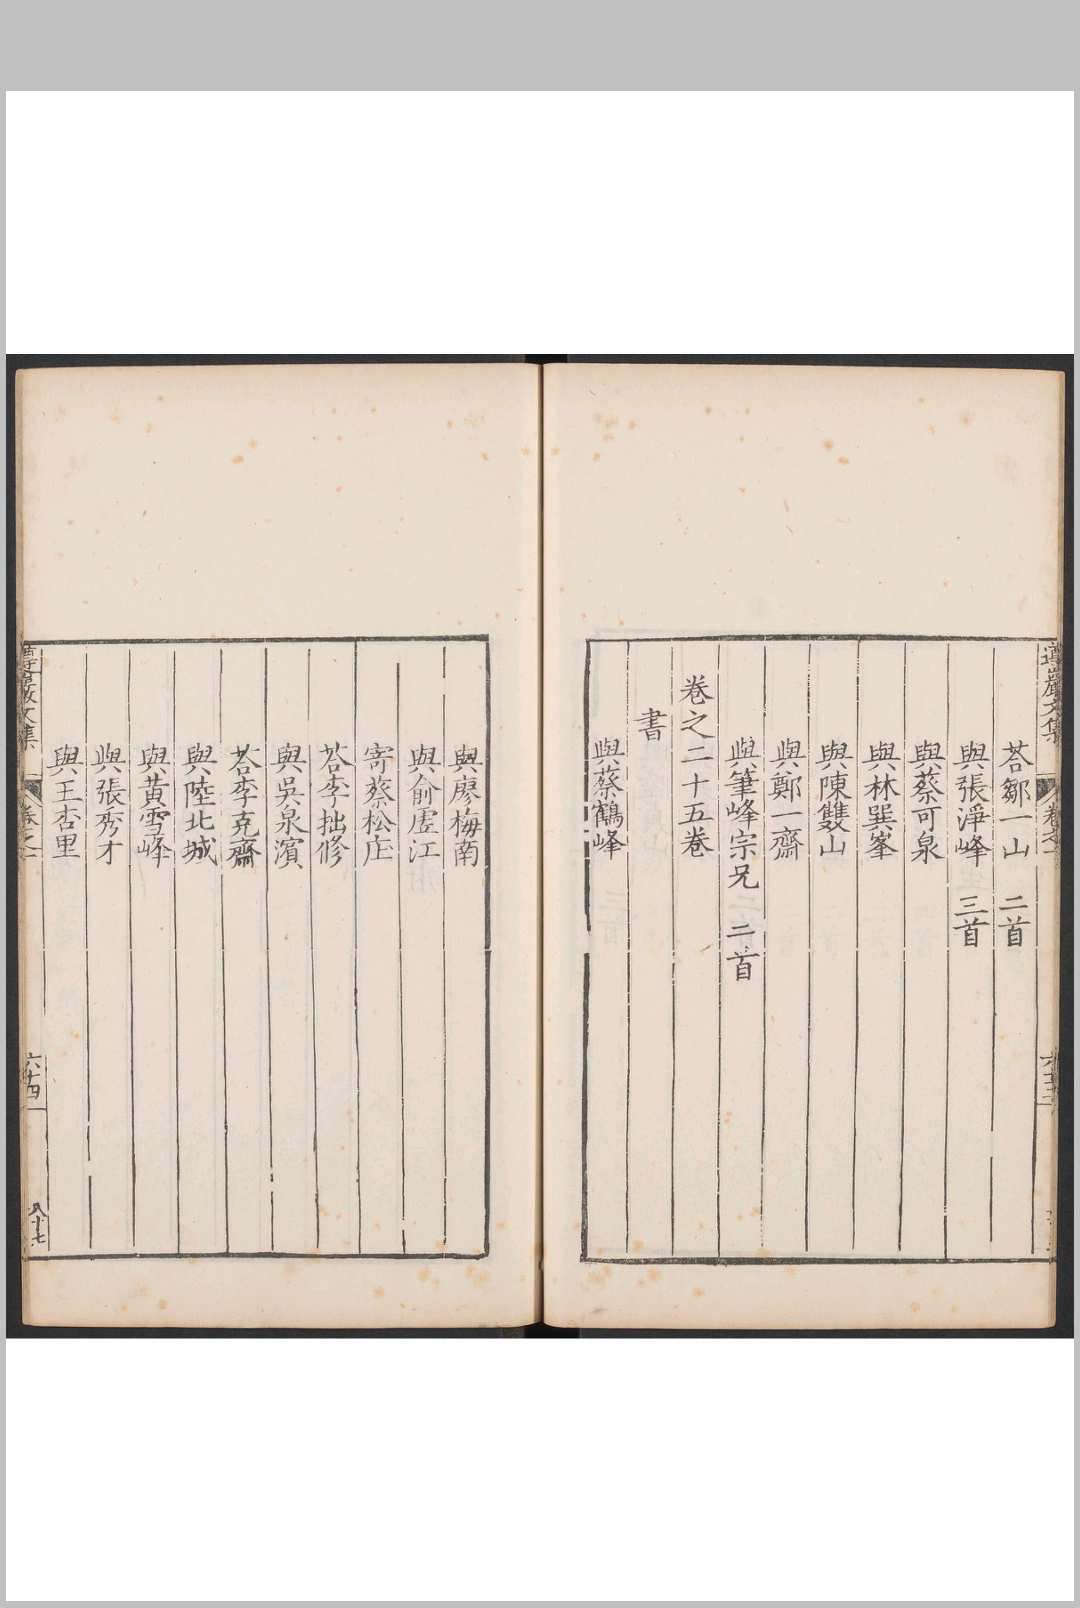 遵巖文集
卷之
荅鄒一山　二首
與張淨峰　三首
與蔡可泉
與林巽峯
與陳雙山
與鄭一齋
與筆峰宗兄　二首
卷之二十五卷
書
與蔡鶴峰
與廖梅南
與俞虛江
寄蔡松庄
荅李拙修
與吳泉濵
荅李克齋
與陸北城
與黃雪峰
與張秀才
與王杏里
遵巖文集
卷之
六十四
八十七